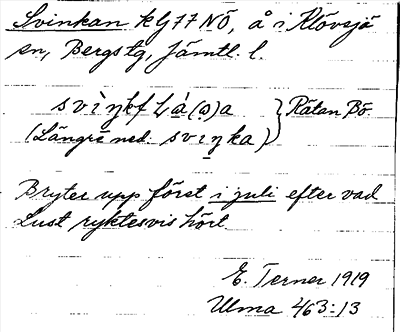 Svinkan kG77NÖ, å i Klövsjö
sn, Bergs tg, Jämtl. l.
(Längre ned: sviŋka)
Rätan Bö.
Bryter upp först i juli efter vad
Lust ryktesvis hört.
E. Terner 1919
Ulma 463:13